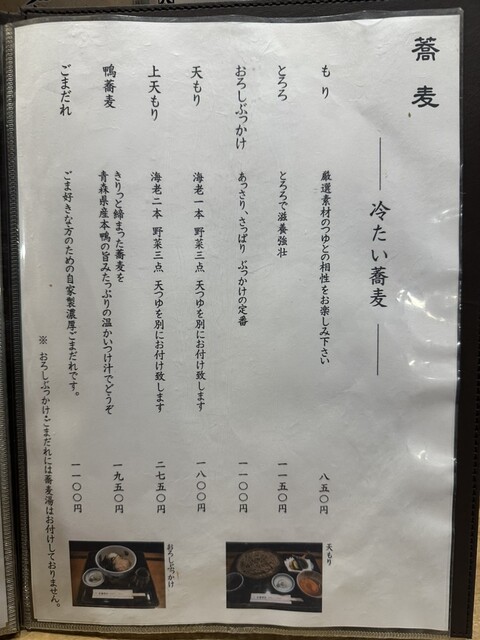 蕎麦
冷たい蕎麦
もり 厳選素材のつゆとの相性をお楽しみ下さい 八五〇円
とろろ とろろで滋養強壮 一一五〇円
おろしぶっかけ あっさり、さっぱり ぶっかけの定番 一一〇〇円
天もり 海老一本 野菜三点 天つゆを別にお付け致します 一八〇〇円
上天もり 海老二本 野菜三点 天つゆを別にお付け致します 二七五〇円
鴨蕎麦 きりっと締まった蕎麦を
青森県産本鴨の旨みたっぷりの温かいつけ汁でどうぞ 一九五〇円
ごまだれ ごま好きな方のための自家製濃厚ごまだれです。 一一〇〇円
※ おろしぶっかけ・ごまだれには蕎麦湯はお付けしておりません。
天もり
おろしぶっかけ